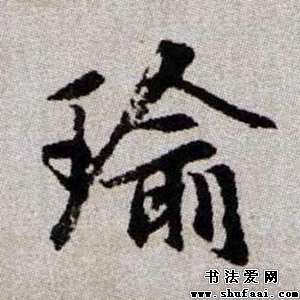 瑜
书法爱网
www.shufaai.com